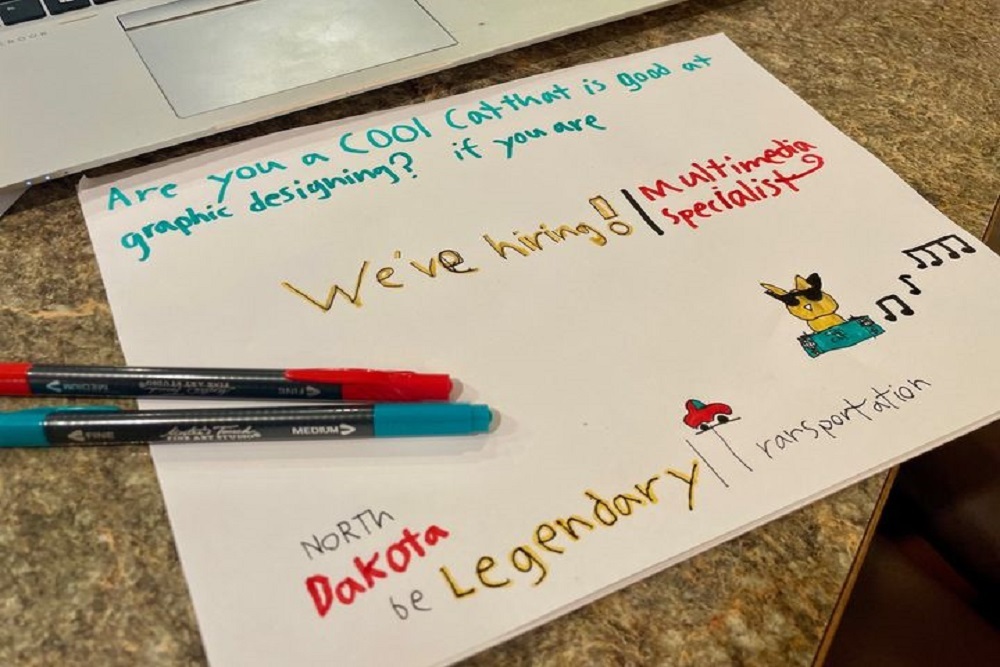 Are you a COOl Cat that is good at
graphic designing? if you are
We've hiring! | Multimedia
specialist
NORTH
Dakota
be Legendary | Transportation
MEDIUM
FINE
FINE
FINE ART STUDIO
MEDIUM